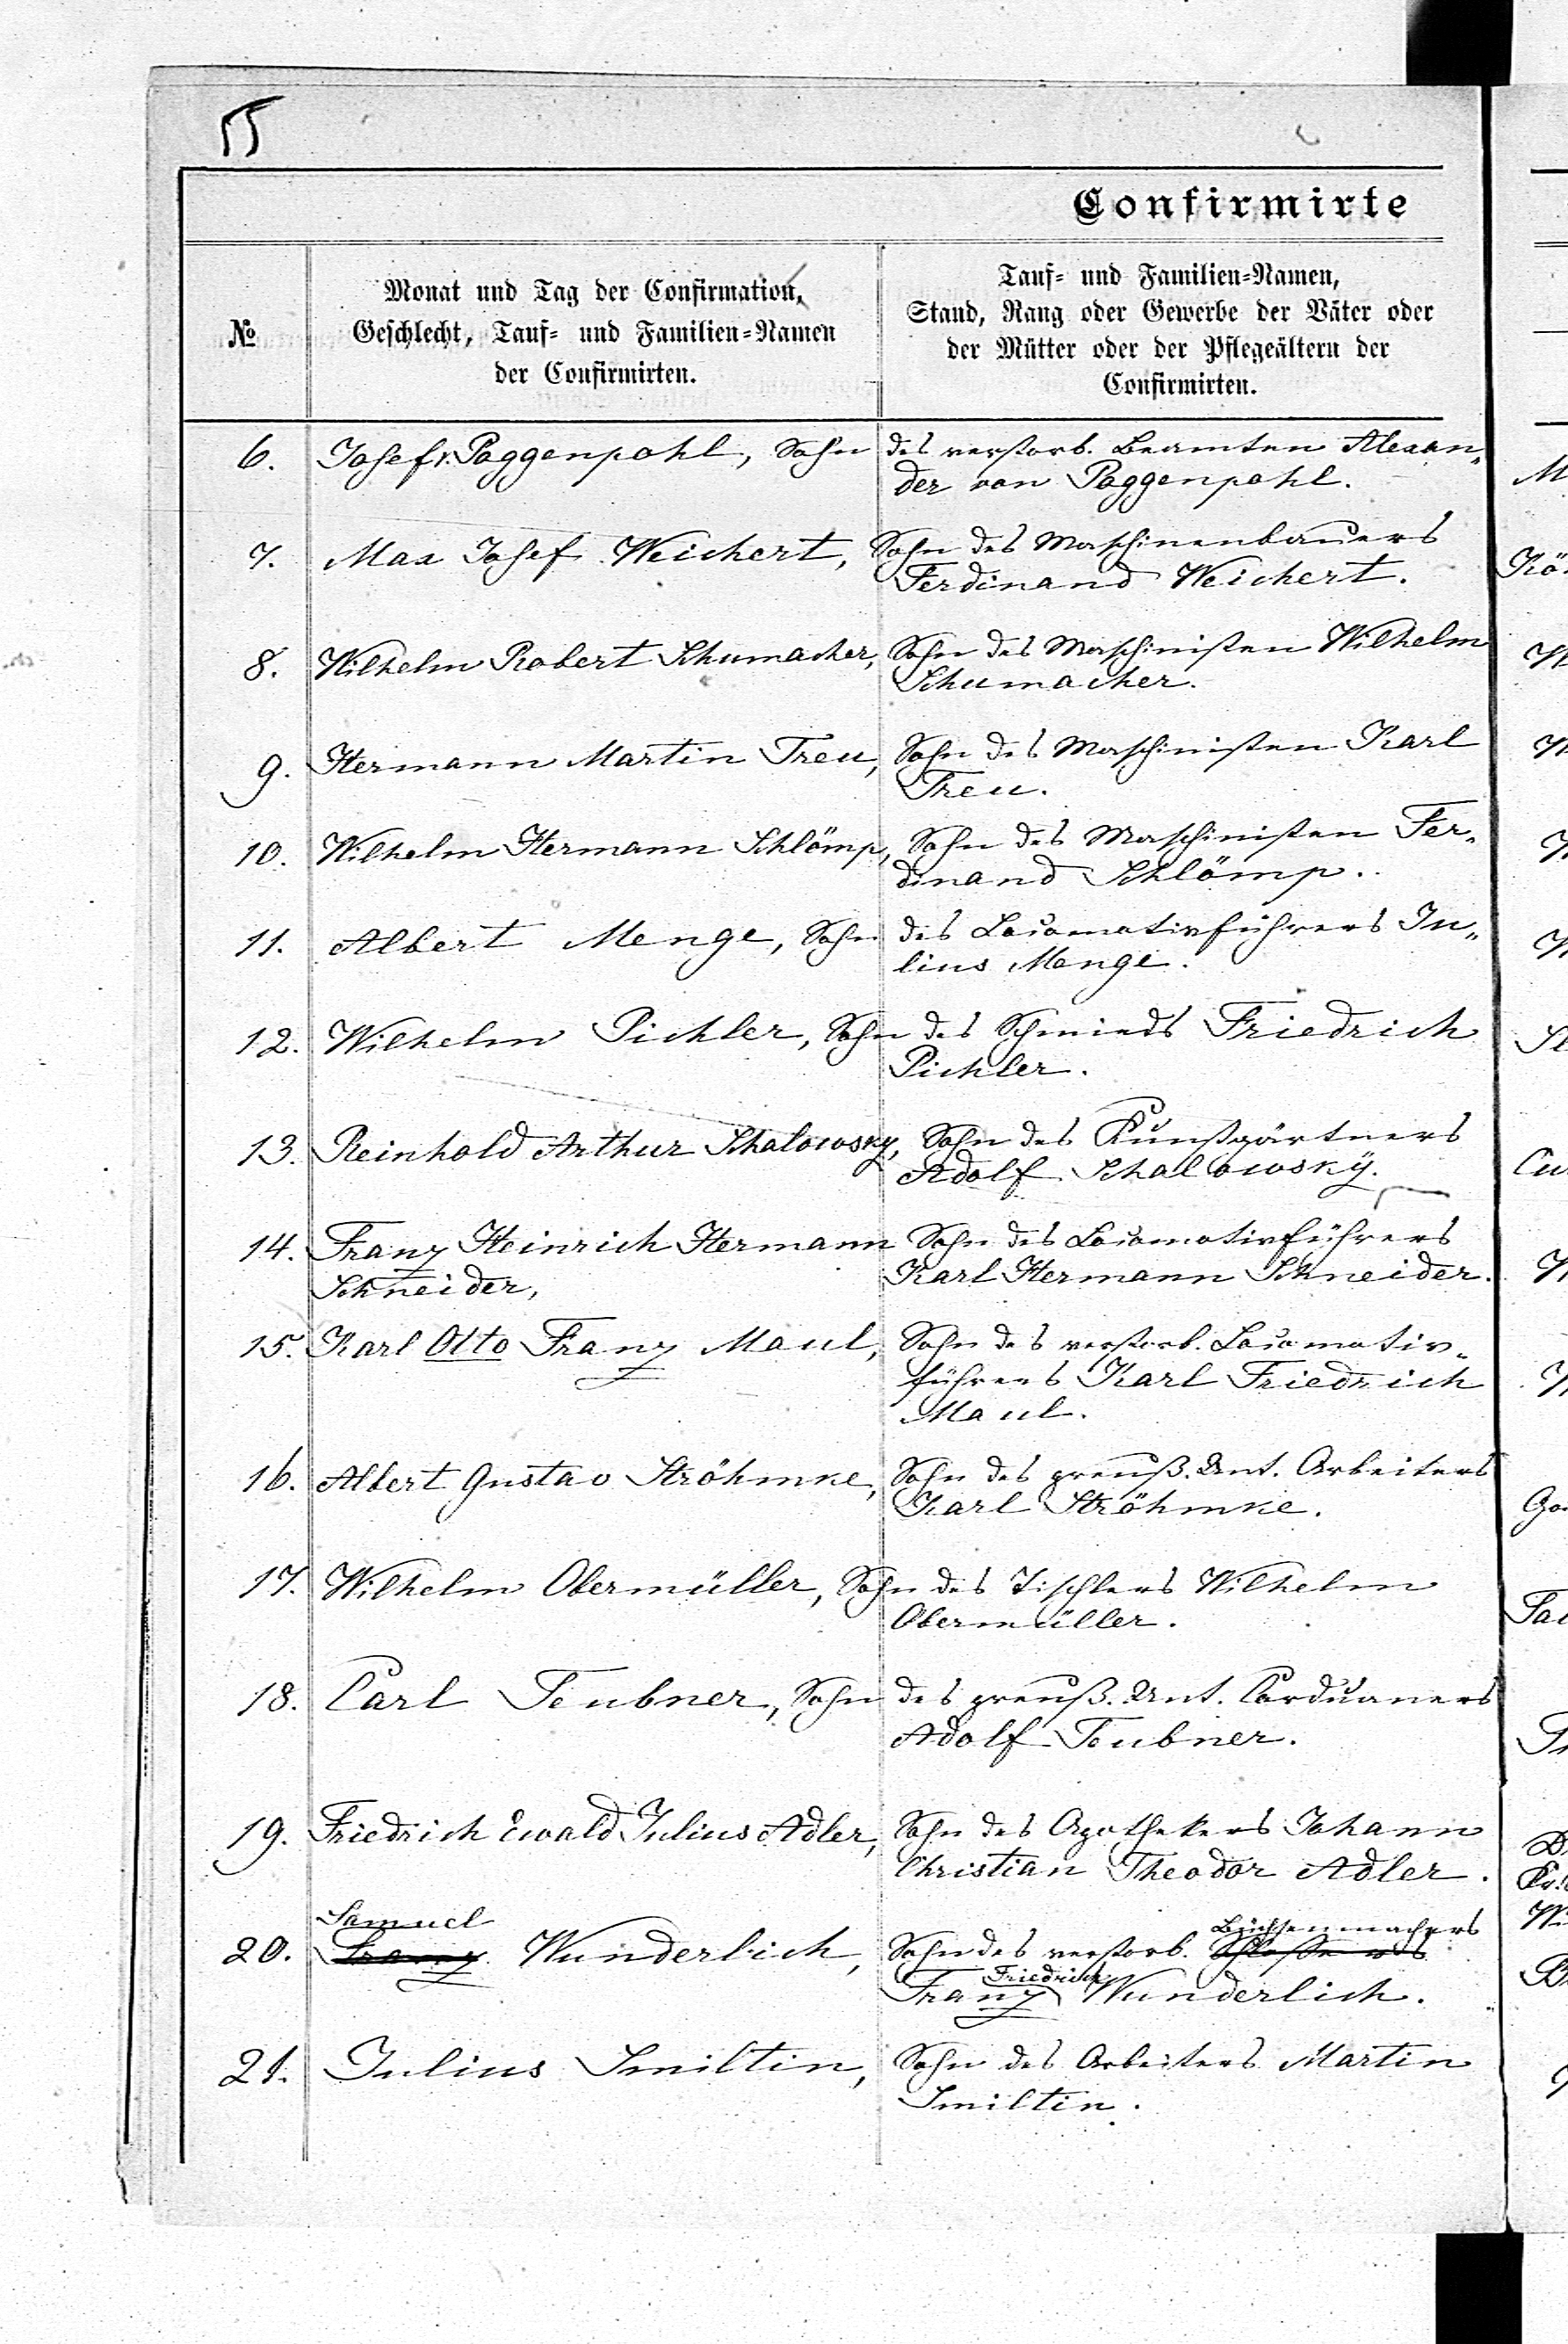 55
Confirmirte
№
Monat und Tag der Confirmation,
Geschlecht, Tauf- und Familien-Namen
der Confirmirten.
Tauf- und Familien-Namen,
Stand, Rang oder Gewerbe der Väter oder
der Mütter oder der Pflegeältern der
Confirmirten.
6. Josef v. Poggenpohl, Sohn des verstorb. Beamten Alexan„
der von Poggenpohl.
7. Max Josef Weichert, Sohn des Maschinenbauers
Ferdinand Weichert.
8. Wilhelm Robert Schumacher, Sohn des Maschinisten Wilhelm
Schumacher.
9. Hermann Martin Treu, Sohn des Maschinisten Karl
Treu.
10. Wilhelm Hermann Schlömp, Sohn des Maschinisten Fer„
dinand Schlömp.
11. Albert Menge, Sohn des Locomotivführers Ju„
lius Menge.
12. Wilhelm Pichler, Sohn des Schmieds Friedrich
Pichler.
13. Reinhold Arthur Schalowsky, Sohn des Kunstgärtners
Adolf Schalowsky.
14. Franz Heinrich Hermann Sohn des Locomotivführers
Schneider, Karl Hermann Schneider.
15. Karl Otto Franz Maul, Sohn des verstorb. Locomotiv-
führers Karl Friedrich
Maul.
16. Albert Gustav Ströhmke, Sohn des preuß. Unt. Arbeiters
Karl Ströhmke.
17. Wilhelm Obermüller, Sohn des Tischlers Wilhelm
Obermüller.
18. Carl Teubner, Sohn des preuß. Unt. Corduaners
Adolf Teubner.
19. Friedrich Ewald Julius Adler, Sohn des Apothekers Johann
Christian Theodor Adler.
Samuel Büchsenmachers
20. Franz Wunderlich, Sohn des verstorb. Schlossers
Friedrich
Franz Wunderlich.
21. Julius Smiltin, Sohn des Arbeiters Martin
Smiltin.